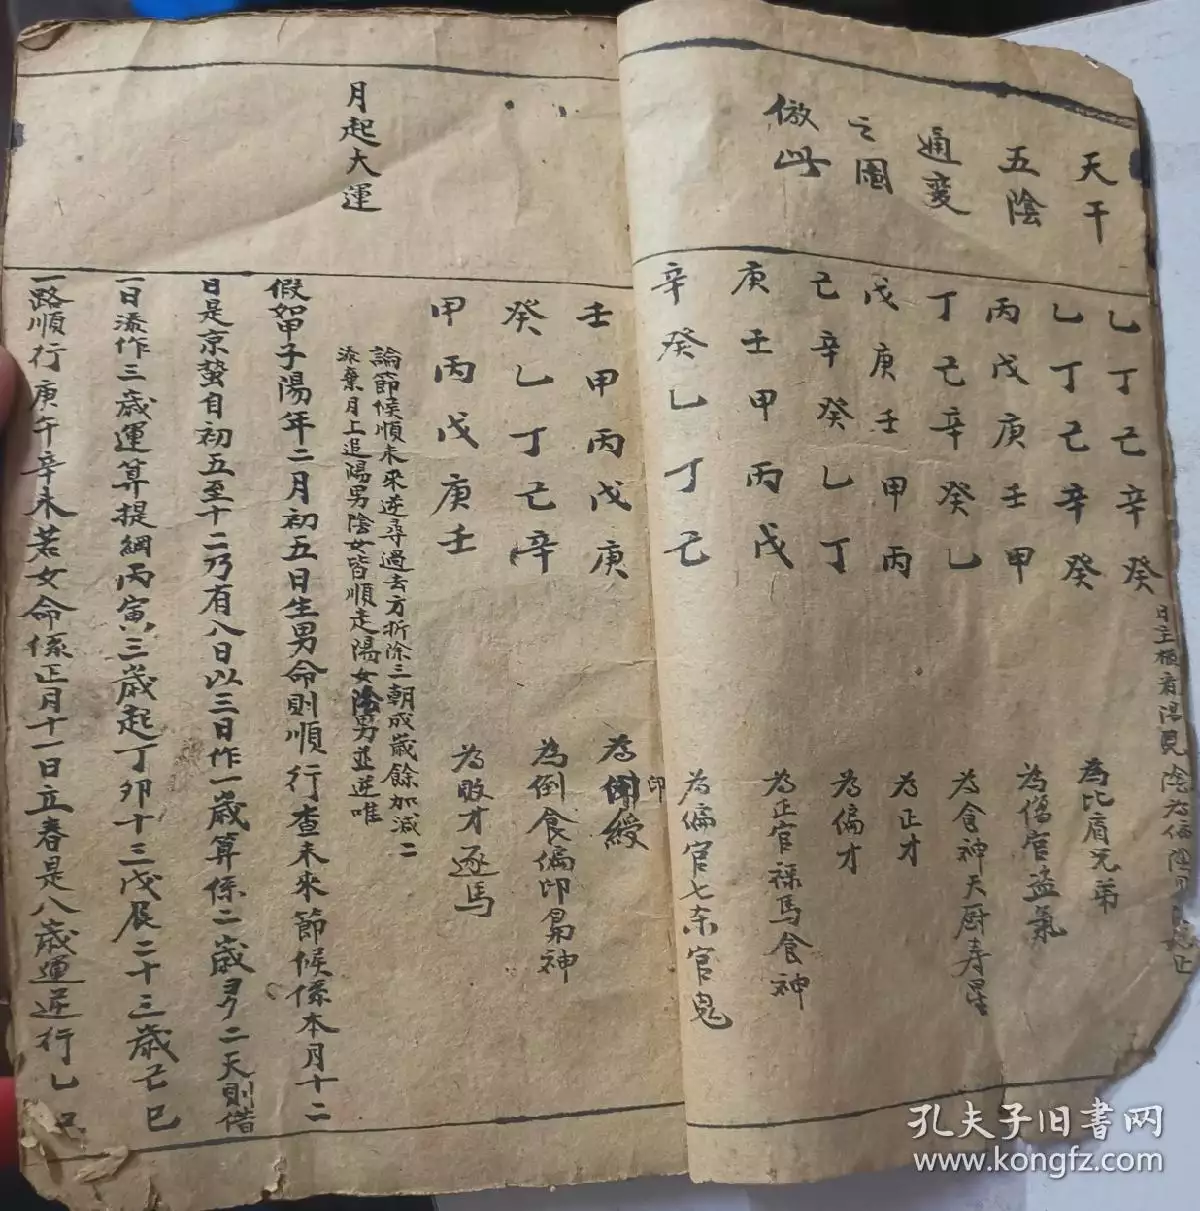 天干
五陰
通變
之圖
倣此
乙丁己辛癸
乙丁己辛癸 為比肩兄弟
丙戊庚壬甲 為傷官盗氣
丁己辛癸乙 為食神天厨寿星
戊庚壬甲丙 為正才
己辛癸乙丁 為偏才
庚壬甲丙戊 為正官禄馬食神
辛癸乙丁己 為偏官七杀官鬼
壬甲丙戊庚 為印綬
印
癸乙丁己辛 為倒食偏印梟神
甲丙戊庚壬 為敗才逐馬
月起大運
論節候順未來逆尋過去方折除三朝成歲餘加減二
添棄月上追陽男陰女皆順走陽女陰男並逆唯
假如甲子陽年二月初五日生男命則順行查未來節候係本月十二
日是京蟄自初五至十二乃有八日以三日作一歲算係二歲ヨク二天則借
一日添作三歲運算提綱丙寅三歲起丁卯十三戊辰二十三歲己巳
一路順行庚午辛未若女命係正月十一日立春是八歲運逆行乙丑
孔夫子旧書网
www.kongfz.com